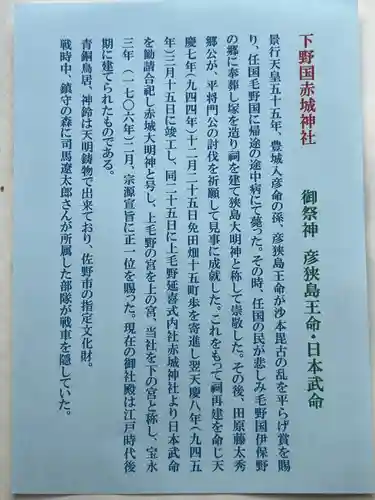 下野国赤城神社
御祭神　彦狭島王命・日本武命
景行天皇五十五年、豊城入彦命の孫、彦狭島王命が沙本毘古の乱を平らげ賞を賜
り、任国毛野国に帰途の途中病にて薨った。その時、任国の民が悲しみ毛野国伊保野
の郷に奉葬し塚を造り祠を建て狭島大明神と称して崇敬した。その後、田原藤太秀
郷公が、平将門公の討伐を祈願して見事に成就した。これをもって祠再建を命じ天
慶七年(九四四年)十二月二十五日免田畑十五町歩を寄進し翌天慶八年(九四五
年)三月十五日に竣工し、同二十五日に上毛野延喜式内社赤城神社より日本武命
を勧請合祀し赤城大明神と号し、上毛野の宮を上の宮、当社を下の宮と称し、宝永
三年　(一七〇六年)二月、宗源宣旨に正一位を賜った。現在の御社殿は江戸時代後
期に建てられたものである。
青銅鳥居、神鈴は天明鋳物で出来ており、佐野市の指定文化財。
戦時中、鎮守の森に司馬遼太郎さんが所属した部隊が戦車を隠していた。